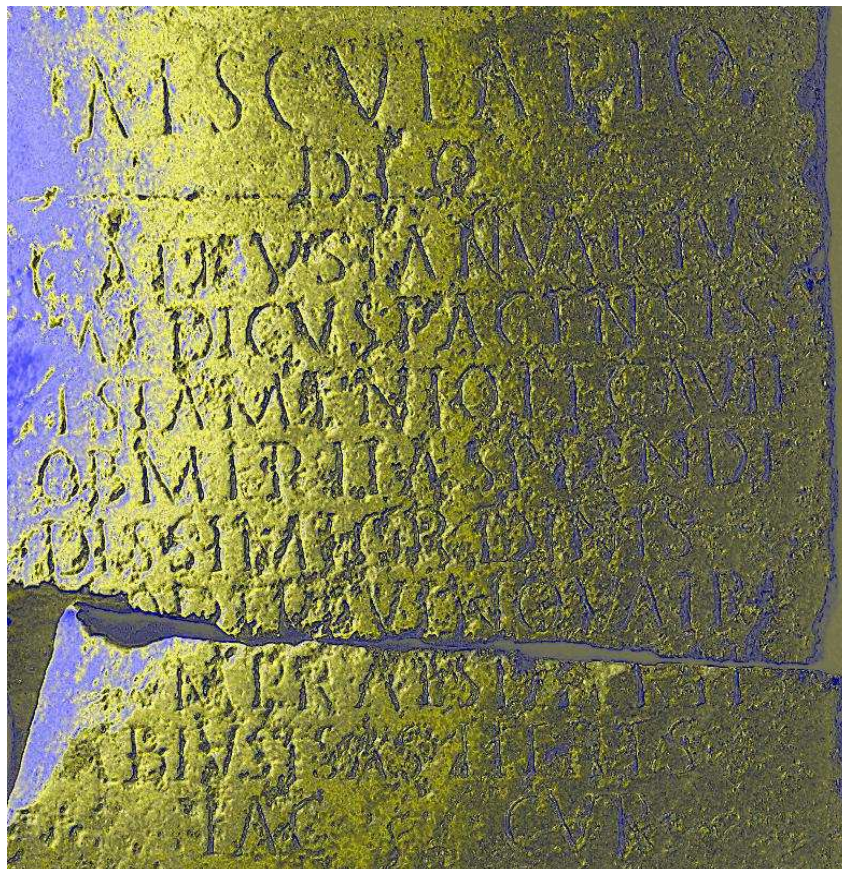 AESCVLAPIO
DEO
C ATTIVS IANVARIVS
MEDICVS PACENSIS
TESTAMENTO LEGAVIT
OB MERITA SPLENDI
DISSIMI ORDINIS
QVINQVATRI
M PRAESTITERIT
BIVS ISAS HERES
FAC CVR